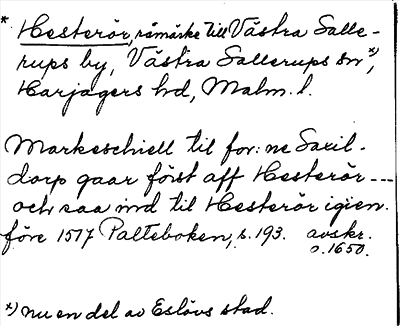 * Hesterör, råmärke till Västra Salle-
rups by, Västra Sallerups sn *),
Harjagers hd, Malm. l.
Markeschiell til for: ne Saxil-
dorp gaar först aff Hesterör ---
och saa ind til Hesterör igien.
före 1517 Palteboken, s. 193. avskr.
o. 1650.
*) nu en del av Eslövs stad.